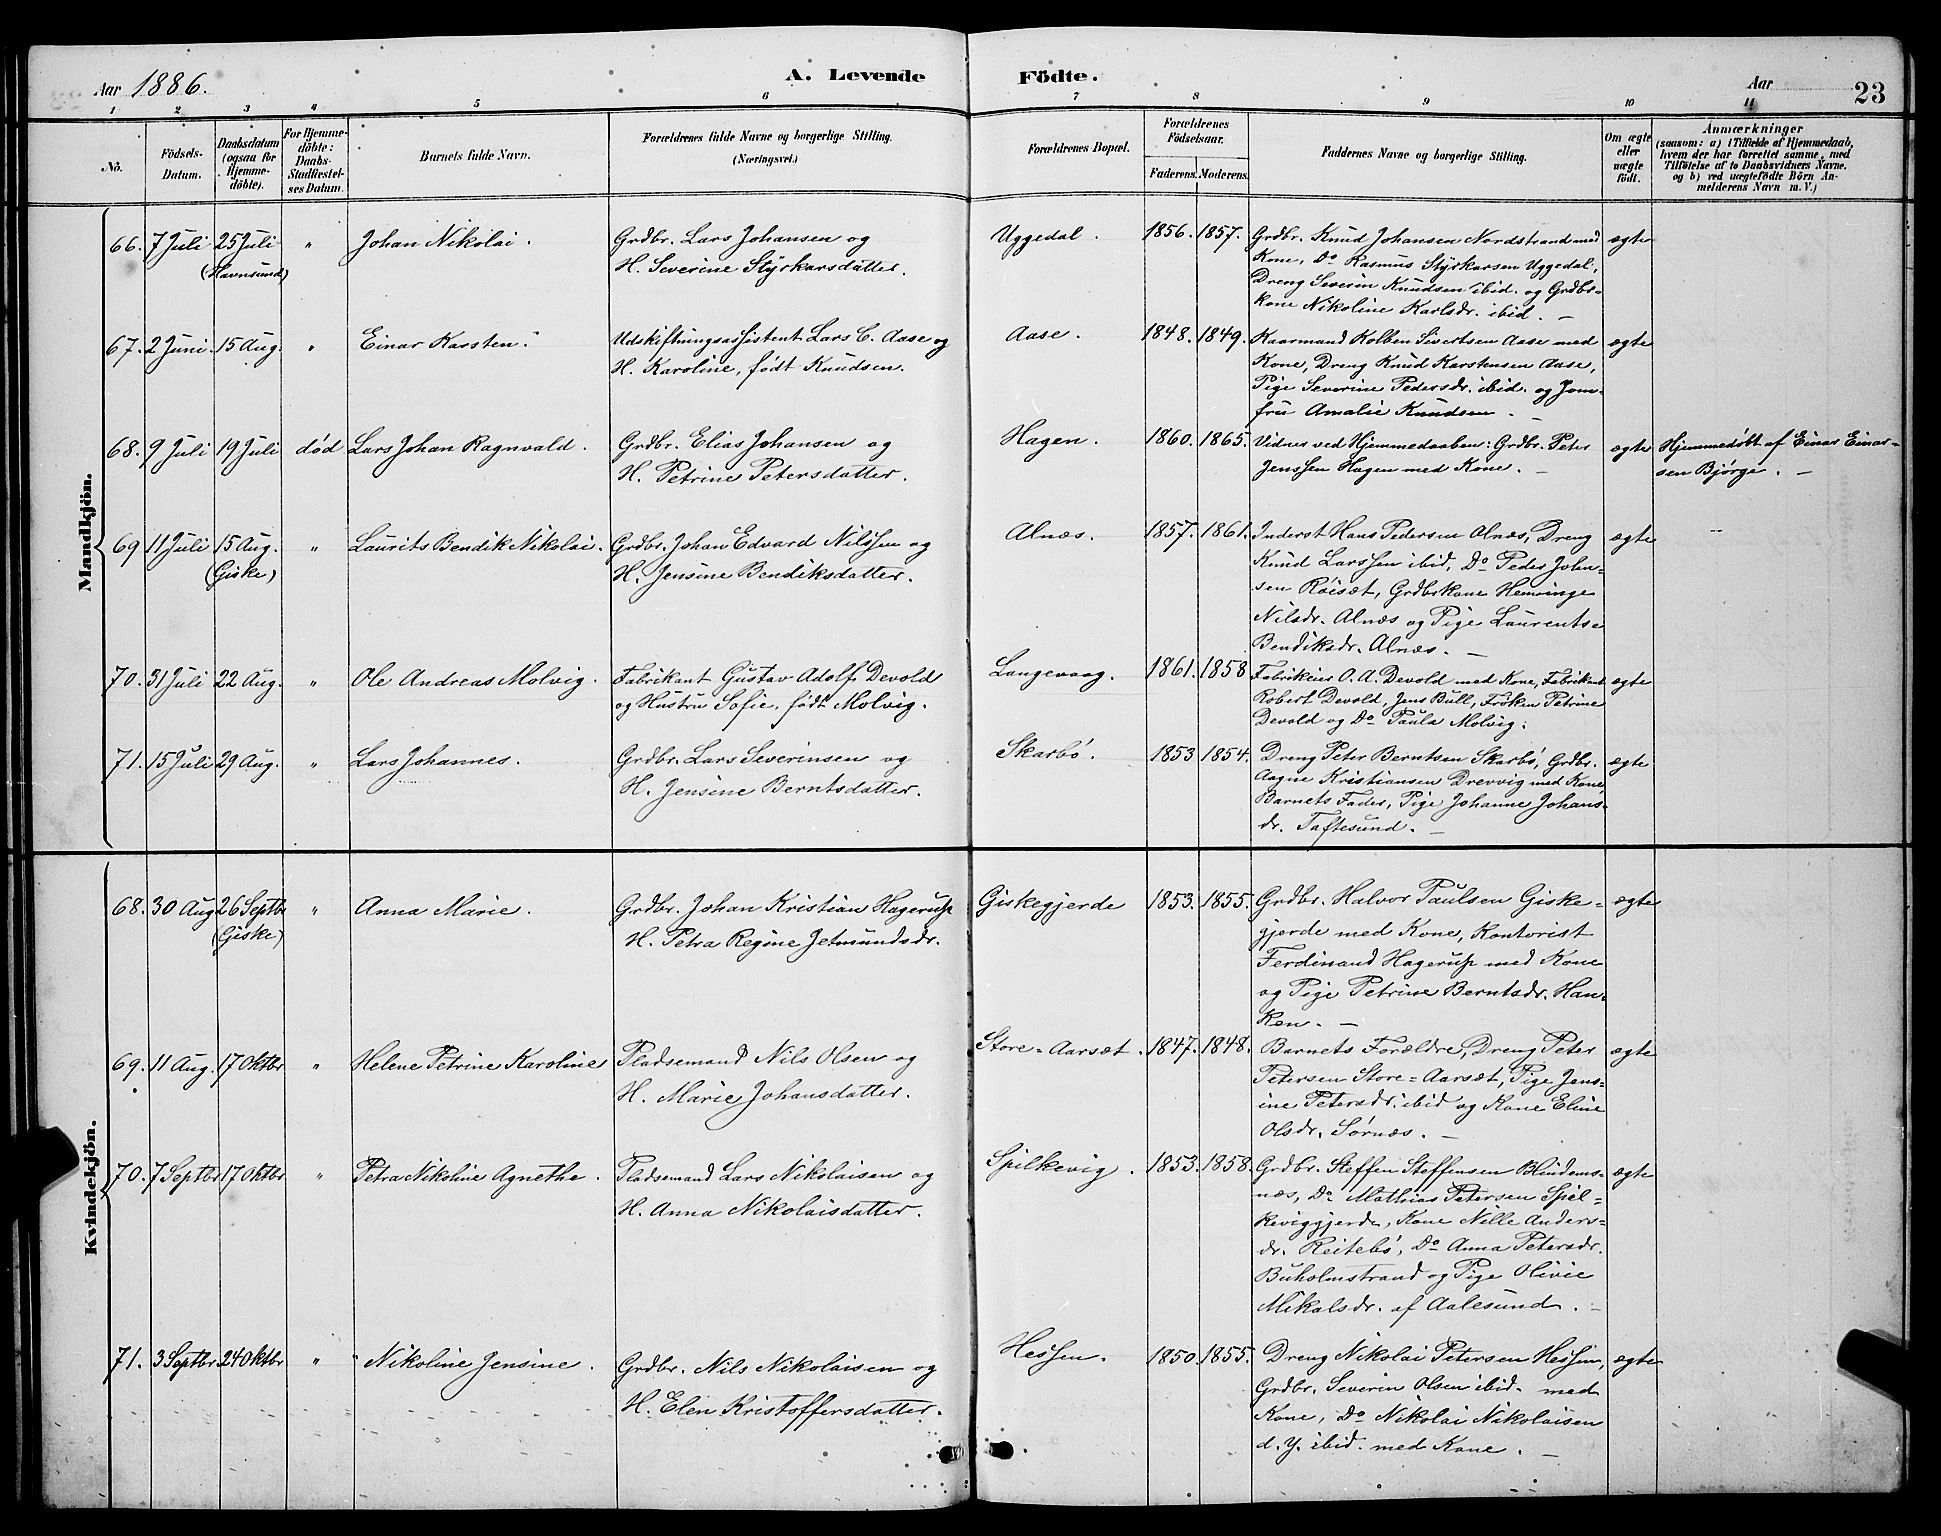 Aar 1886.
A. Levende Födte.
Aar
23
1 2 3 4 5 6 7 8 9 10 11
No.
Födsels-
Datum.
Daabsdatum
(ogsaa for
Hjemme-
döbte).
For Hjemme-
döbte:
Daabs-
Stadfæstel-
ses Datum.
Barnets fulde Navn.
Forældrenes fulde Navne og borgerlige Stilling.
(Næringsvei.)
Forældrenes Bopæl.
Forældrenes
Födselsaar.
Faderens. Moderens.
Faddernes Navne og borgerlige Stilling.
Om ægte
eller
uægte
födt.
Anmærkninger
(saasom: a) i Tilfælde af Hjemmedaab,
hvem der har forrettet samme, med
Tilföielse af to Daabsvidners Navne.
og b) ved uægtefödte Börn An-
melderens Navn m. V.)
Mandkjön.
66. 7 Juli 25 Juli " Johan Nikolai. Grdbr. Lars Johansen og Uggedal. 1856. 1857. Grdbr. Knud Johansen Nordstrand med ægte
(Havnsund) H. Severine Styrkarsdatter. Kone, Do Rasmus Styrkarsen Uggedal,
Dreng Severin Knudsen ibid. og Grdbr=
kone Nikoline Karlsdr. ibid. —
67. 2 Juni. 15 Aug. " Einar Karsten. Udskiftningsassistent Lars C. Aase og Aase. 1848. 1849. Kaarmand Kolben Sivertsen Aase med ægte
H. Karoline, født Knudsen. Kone, Dreng Knud Karstensen Aase,
Pige Severine Pedersdr. ibid. og Jom-
fru Amalie Knudsen. —
68. 9 Juli 19 Juli død Lars Johan Ragnvald. Grdbr. Elias Johansen og Hagen. 1860. 1865. Vidner ved Hjemmedaaben: Grdbr. Peter ægte Hjemmedøbt af Einar Einar=
H. Petrine Petersdatter. Jenssen Hagen med Kone. — sen Bjørge. —
69 11 Juli 15 Aug. " Laurits Bendik Nikolai. Grdbr. Johan Edvard Nilssen og Alnæs. 1857. 1861. Inderst Hans Pedersen Alnæs, Dreng ægte —
(Giske) H. Jensine Bendiksdatter. Knud Larssen ibid, Do Peder Johan=
sen Röisæt, Grdbrkone Henvinge
Nilsdr. Alnæs og Pige Laurentse
Bendiksdr. Alnæs. —
70. 31 Juli 22 Aug. " Ole Andreas Molvig. Fabrikant Gustav Adolf Devold Langevaag. 1861. 1858 Fabrikeier O. A. Devold med Kone, Fabrikant ægte
og Hustru Sofie, født Molvig. Robert Devold, Jens Bull, Frøken Petrine
Devold og Do Paula Molvig.
71. 15 Juli 29 Aug. " Lars Johannes. Grdbr. Lars Severinsen og Skarbö. 1853 1854. Dreng Peter Berntsen Skarbö, Grdbr. ægte
H. Jensine Berntsdatter. Aagne Kristiansen Drevvig med Kone,
Barnets Fader, Pige Johanne Johans=
dr. Taftesund. —
Kvindekjön.
68. 30 Aug 26 Septbr " Anna Marie. Grdbr. Johan Kristian Hagerup Giskegjerde 1853. 1855. Grdbr. Halvor Paulsen Giske= ægte
(Giske) H. Petra Regine Jetmundsdr. gjerde med Kone, Kontorist
Ferdinand Hagerup med Kone
og Pige Petrine Berntsdr. Han=
ken. —
69. 11 Aug. 17 Oktbr " Helene Petrine Karoline Pladsemand Nils Olsen og Store=Aarsæt. 1847. 1848. Barnets Forældre, Dreng Peter ægte
H. Marie Johansdatter. Petersen Store=Aarsæt, Pige Jens=
ine Petersdr. ibid og Kone Eline
Olsdr. Sørnæs. —
70. 7 Septbr 17 Oktbr " Petra Nikoline Agnethe. Pladsemand Lars Nikolaisen og Spilkevig. 1853. 1858. Grdbr. Steffen Steffensen Blindems= ægte
H. Anna Nikolaisdatter. næs, Do Mathias Petersen Spil=
keviggjerde, Kone Nille Anders=
dr. Reitebö, Do Anna Petersdr.
Buholmstrand og Pige Olivie
Mikalsdr. af Aalesund. —
71. 3 Septbr 24 Oktbr " Nikoline Jensine. Grdbr. Nils Nikolaisen og Hessen. 1850. 1855. Dreng Nikolai Petersen Hessen, ægte
H. Elen Kristoffersdatter. Grdbr. Severin Olsen ibid. med
Kone, Do Nikolai Nikolaisen
d. Y. ibid. med Kone. —